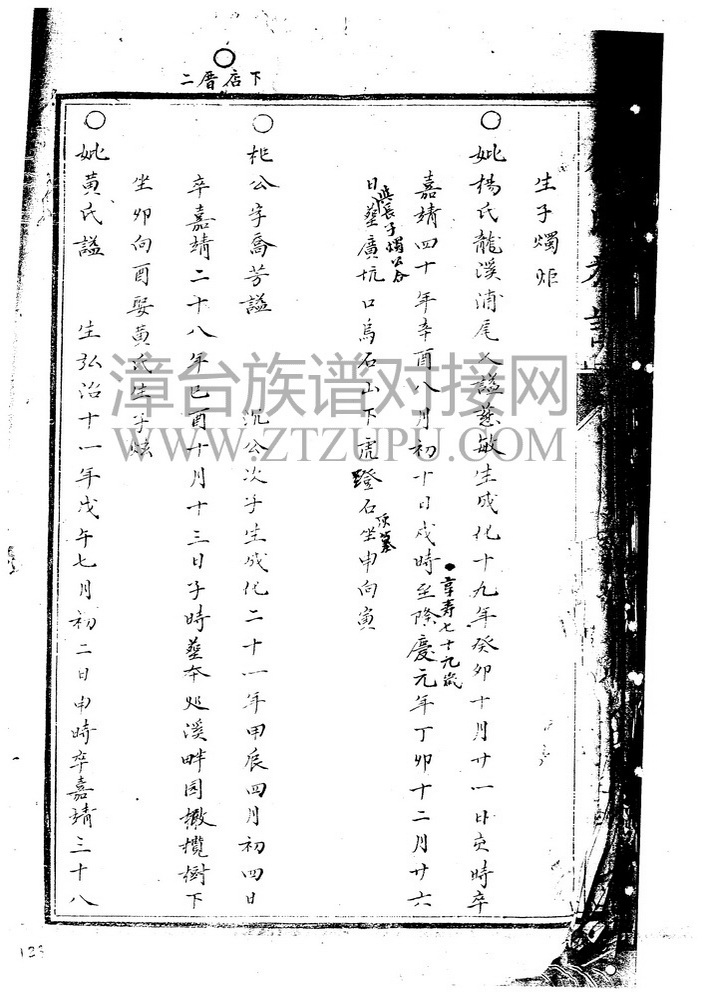 下店厝二
生子燭炬
妣楊氏龍溪浦尾人謚慈敏生成化十九年癸卯十月廿一日亥時卒
嘉靖四十年辛酉八月初十日戌時至隆慶元年丁卯十二月廿六
享寿七十九歲
日與長子燭公合葬廣坑口烏石山下虎蹬石坐申向寅
顶墓
祖公字喬芳謚 沉公次子生成化二十一年甲辰四月初四日
卒嘉靖二十八年己酉十月十三日子時葬本处溪畔园橄欖樹下
坐卯向酉娶黄氏生子炫
妣黄氏謚 生弘治十一年戊午七月初二日申時卒嘉靖三十八
漳台族谱对接网
WWW.ZTZUPU.COM
123